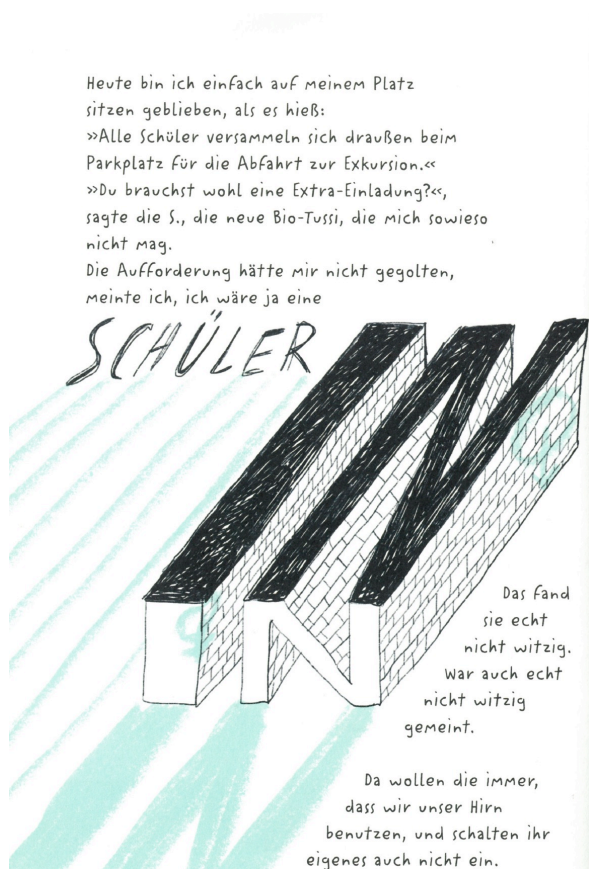 Heute bin ich einfach auf meinem Platz
sitzen geblieben, als es hieß:
»Alle Schüler versammeln sich draußen beim
Parkplatz für die Abfahrt zur Exkursion.«
»Du brauchst wohl eine Extra-Einladung?«,
sagte die S., die neue Bio-Tussi, die mich sowieso
nicht mag.
Die Aufforderung hätte mir nicht gegolten,
meinte ich, ich wäre ja eine
SCHÜLER
IN
Das fand
sie echt
nicht witzig.
War auch echt
nicht witzig
gemeint.
Da wollen die immer,
dass wir unser Hirn
benutzen, und schalten ihr
eigenes auch nicht ein.